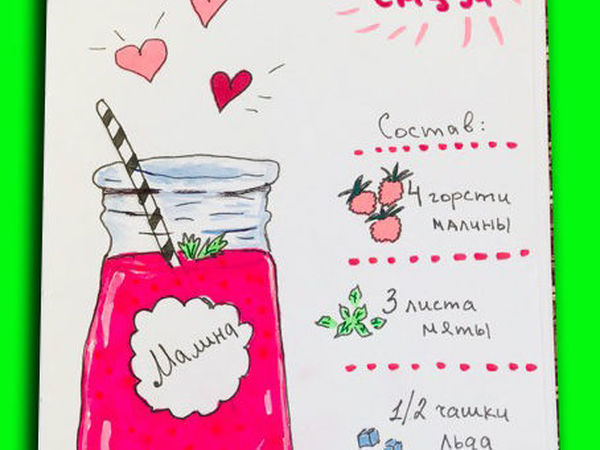 Состав:
4 горсти
малины
3 листа
мяты
1/2 чашки
льда
Малина